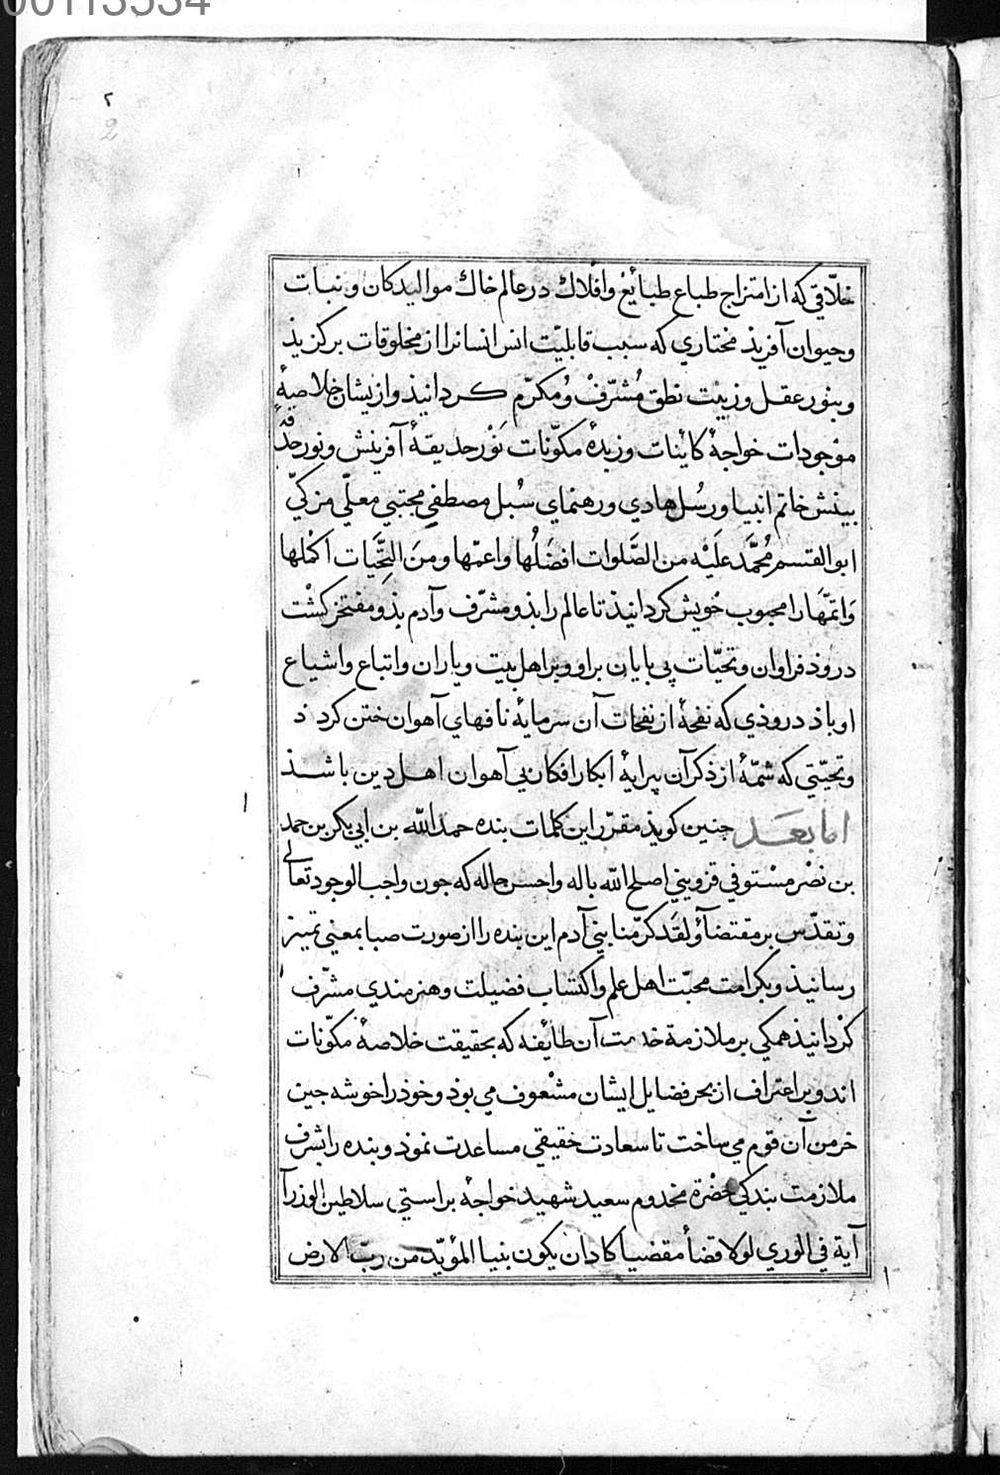 00113534
٢
2
خلّاقي كه از امتزاج طباع طبائع وافلاك در عالم خاك مواليد كان و نبات
وحيوان آفريذ مختاري كه سبب قابليّت انس انسانرا از مخلوقات بركزيذ
وبنور عقل و زينت نطق مُشرّفْ ومُكرّم كردانيذ وازيشان خلاصهٔ
موْجودات خواجهٔ كاينات و زبدهٔ مكوّنات نَوْر حديقهٔ آفرينش و نور حدقهٔ
بينش خاتم انبيا و رسُل هادي و رهنماي سُبل مصطفي مجتبي معلّي مزكيّ
ابو القسم مُحمَّد عَلَيْه من الصَّلوات افضَلُها واعمّها ومنَ التَحَّيات اكْملها
وَاتمّهَا را محبوب خويش كردانيذ تا عالم را بذو مشرّف و آدم بذو مفتخر كشت
دروذ فراوان و تحيّات بي پايان براو وبر اهل بيت و ياران و اتباع و اشياع
او باذ دروذي كه نفحهٔ از نفحات آن سرمايهٔ نافهاي آهوان ختن كردذ
و تحيّتي كه شمّهٔ از ذكر آن پيرايهٔ ابكار افكار بي آهوان اهل دين باشذ
اما بعَد جنين كويذ مقرّر اين كلمات بنده حمد الله بن ابي بكر بن حمد
بن نصْر مسْتوفي قزويني اصلح الله باله و احسن حاله كه جون واجب الوجود تعالي
و تقدّس بر مقتضآ ولَقَد كرّمنا بني آدم اين بنده را از صورت صبا بمعني تميز
رسانيذ و بكرامت محبّت اهل علم و اكتساب فضيلت و هنرمندي مشرّف
كرْدانيذ همكي بر ملازمة خدمت آن طايفه كه بحقيقت خلاصهٔ مكوّنات
اند و بر اعتراف از بحر فضايل ايشان مشْعوف مي بوذ و خوذ را خوشه جين
خرمن آن قوم مي ساخت تا سعادت حقيقي مساعدت نموذ و بنده را بشرف
ملازمت بندكي حضْرة مخدوم سعيد شهيد خواجهٔ براستي سلاطين الوزرآ
آية في الوري لولا قضأ مقضيا كاد ان يكون بنيا المؤيّد من ربّ الارض